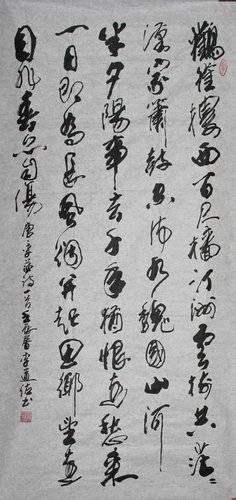 鸛雀樓西百尺樯汀洲雲樹共茫々
漢家簫鼓空流水魏國山河
半夕陽事去千年猶恨速愁來
一日即為長風烟并起思鄉望遠
目非春亦自傷 唐李益詩一首